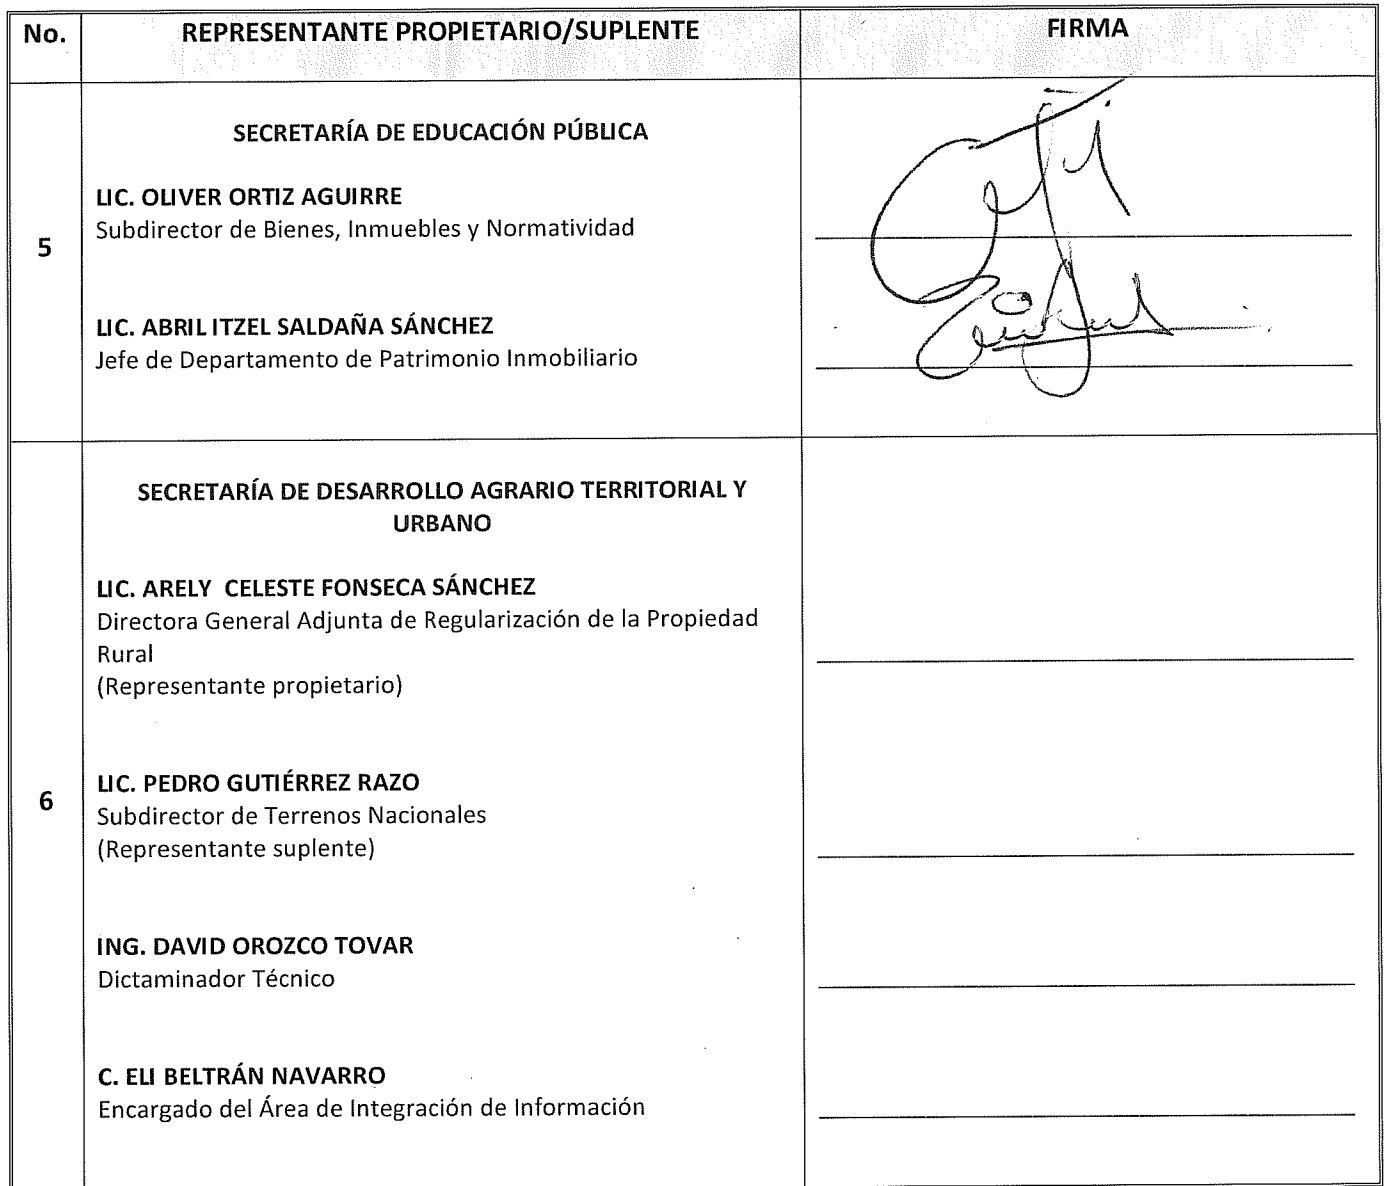 No. REPRESENTANTE PROPIETARIO/SUPLENTE FIRMA
SECRETARÍA DE EDUCACIÓN PÚBLICA
LIC. OLIVER ORTIZ AGUIRRE
Subdirector de Bienes, Inmuebles y Normatividad
5
LIC. ABRIL ITZEL SALDAÑA SÁNCHEZ
Jefe de Departamento de Patrimonio Inmobiliario
SECRETARÍA DE DESARROLLO AGRARIO TERRITORIAL Y
URBANO
LIC. ARELY CELESTE FONSECA SÁNCHEZ
Directora General Adjunta de Regularización de la Propiedad
Rural
(Representante propietario)
LIC. PEDRO GUTIÉRREZ RAZO
6
Subdirector de Terrenos Nacionales
(Representante suplente)
ING. DAVID OROZCO TOVAR
Dictaminador Técnico
C. ELI BELTRÁN NAVARRO
Encargado del Área de Integración de Información